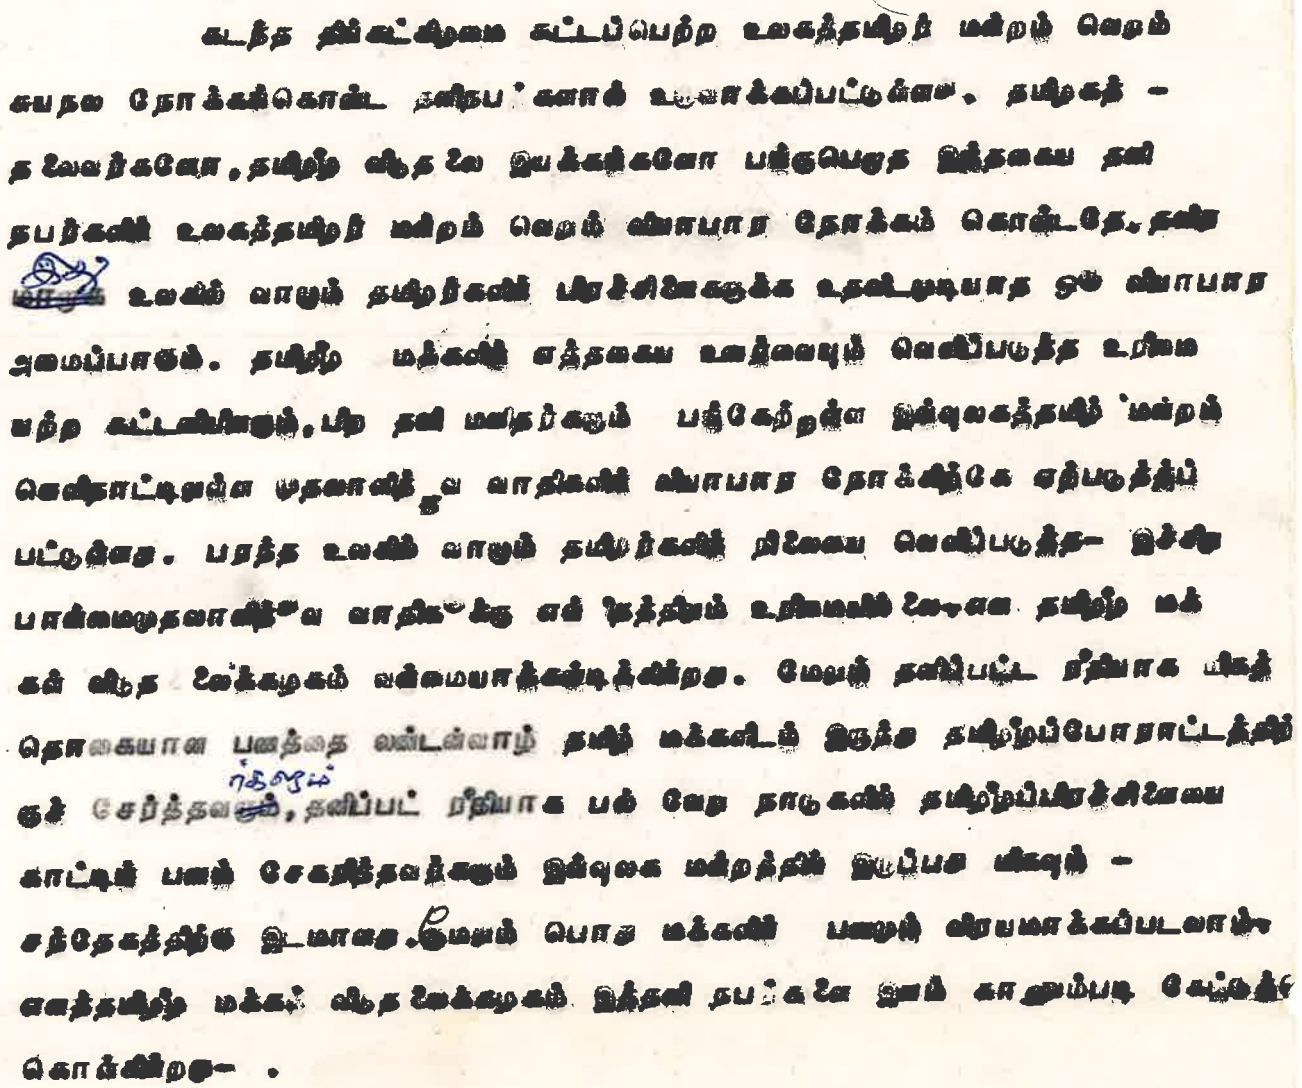 கடந்த திங்கட்கிழமை கூட்டப்பெற்ற உலகத்தமிழர் மன்றம் வெறும்
சுயநல நோக்கங்கொண்ட தனிநபர்களால் உருவாக்கப்பட்டுள்ளது. தமிழகத் -
தலைவர்களோ,தமிழீழ விடுதலை இயக்கங்களோ பங்குபெறாத இத்தகைய தனி
நபர்களின் உலகத்தமிழர் மன்றம் வெறும் வியாபார நோக்கம் கொண்டதே.தவிர
இது உலகில் வாழும் தமிழர்களின் பிரச்சினைகளுக்கு உதவிடமுடியாத ஒரு வியாபார
அமைப்பாகும். தமிழீழ மக்களின் எத்தகைய உணர்வையும் வெளிப்படுத்த உரிமை
யற்ற கூட்டணியினரும்,பிற தனி மனிதர்களும் பங்கேற்றுள்ள இவ்வுலகத்தமிழர் மன்றம்
வெளிநாட்டிலுள்ள முதலாளித்துவ வாதிகளின் வியாபார நோக்கிற்கே ஏற்படுத்தப்
பட்டுள்ளது. பரந்த உலகில் வாழும் தமிழர்களின் நிலையை வெளிப்படுத்த- இச்சிறு
பான்மைமுதலாளித்துவ வாதிகளுக்கு எவ் விதத்திலும் உரிமையில்லை-என தமிழீழ மக்
கள் விடுதலைக்கழகம் வன்மையாக்கண்டிக்கின்றது. மேலும் தனிப்பட்ட ரீதியாக மிகத்
தொகையான பணத்தை லண்டன்வாழ் தமிழ் மக்களிடம் இருந்து தமிழீழப்போராட்டத்திற்
குச் சேர்த்தவர்களும்,தனிப்பட் ரீதியாக பல் வேறு நாடுகளில் தமிழீழப்பிரச்சினையை
காட்டிப் பணம் சேகரித்தவர்களும் இவ்வுலக மன்றத்தில் இருப்பது மிகவும் -
சந்தேகத்திற்கு இடமானது. மேலும் பொது மக்களின் பணமும் விரயமாக்கப்படலாம்.
எனத்தமிழீழ மக்கள் விடுதலைக்கழகம் இத்தனி நபர்களை இனம் காணும்படி கேட்டுக்
கொள்கின்றது- .